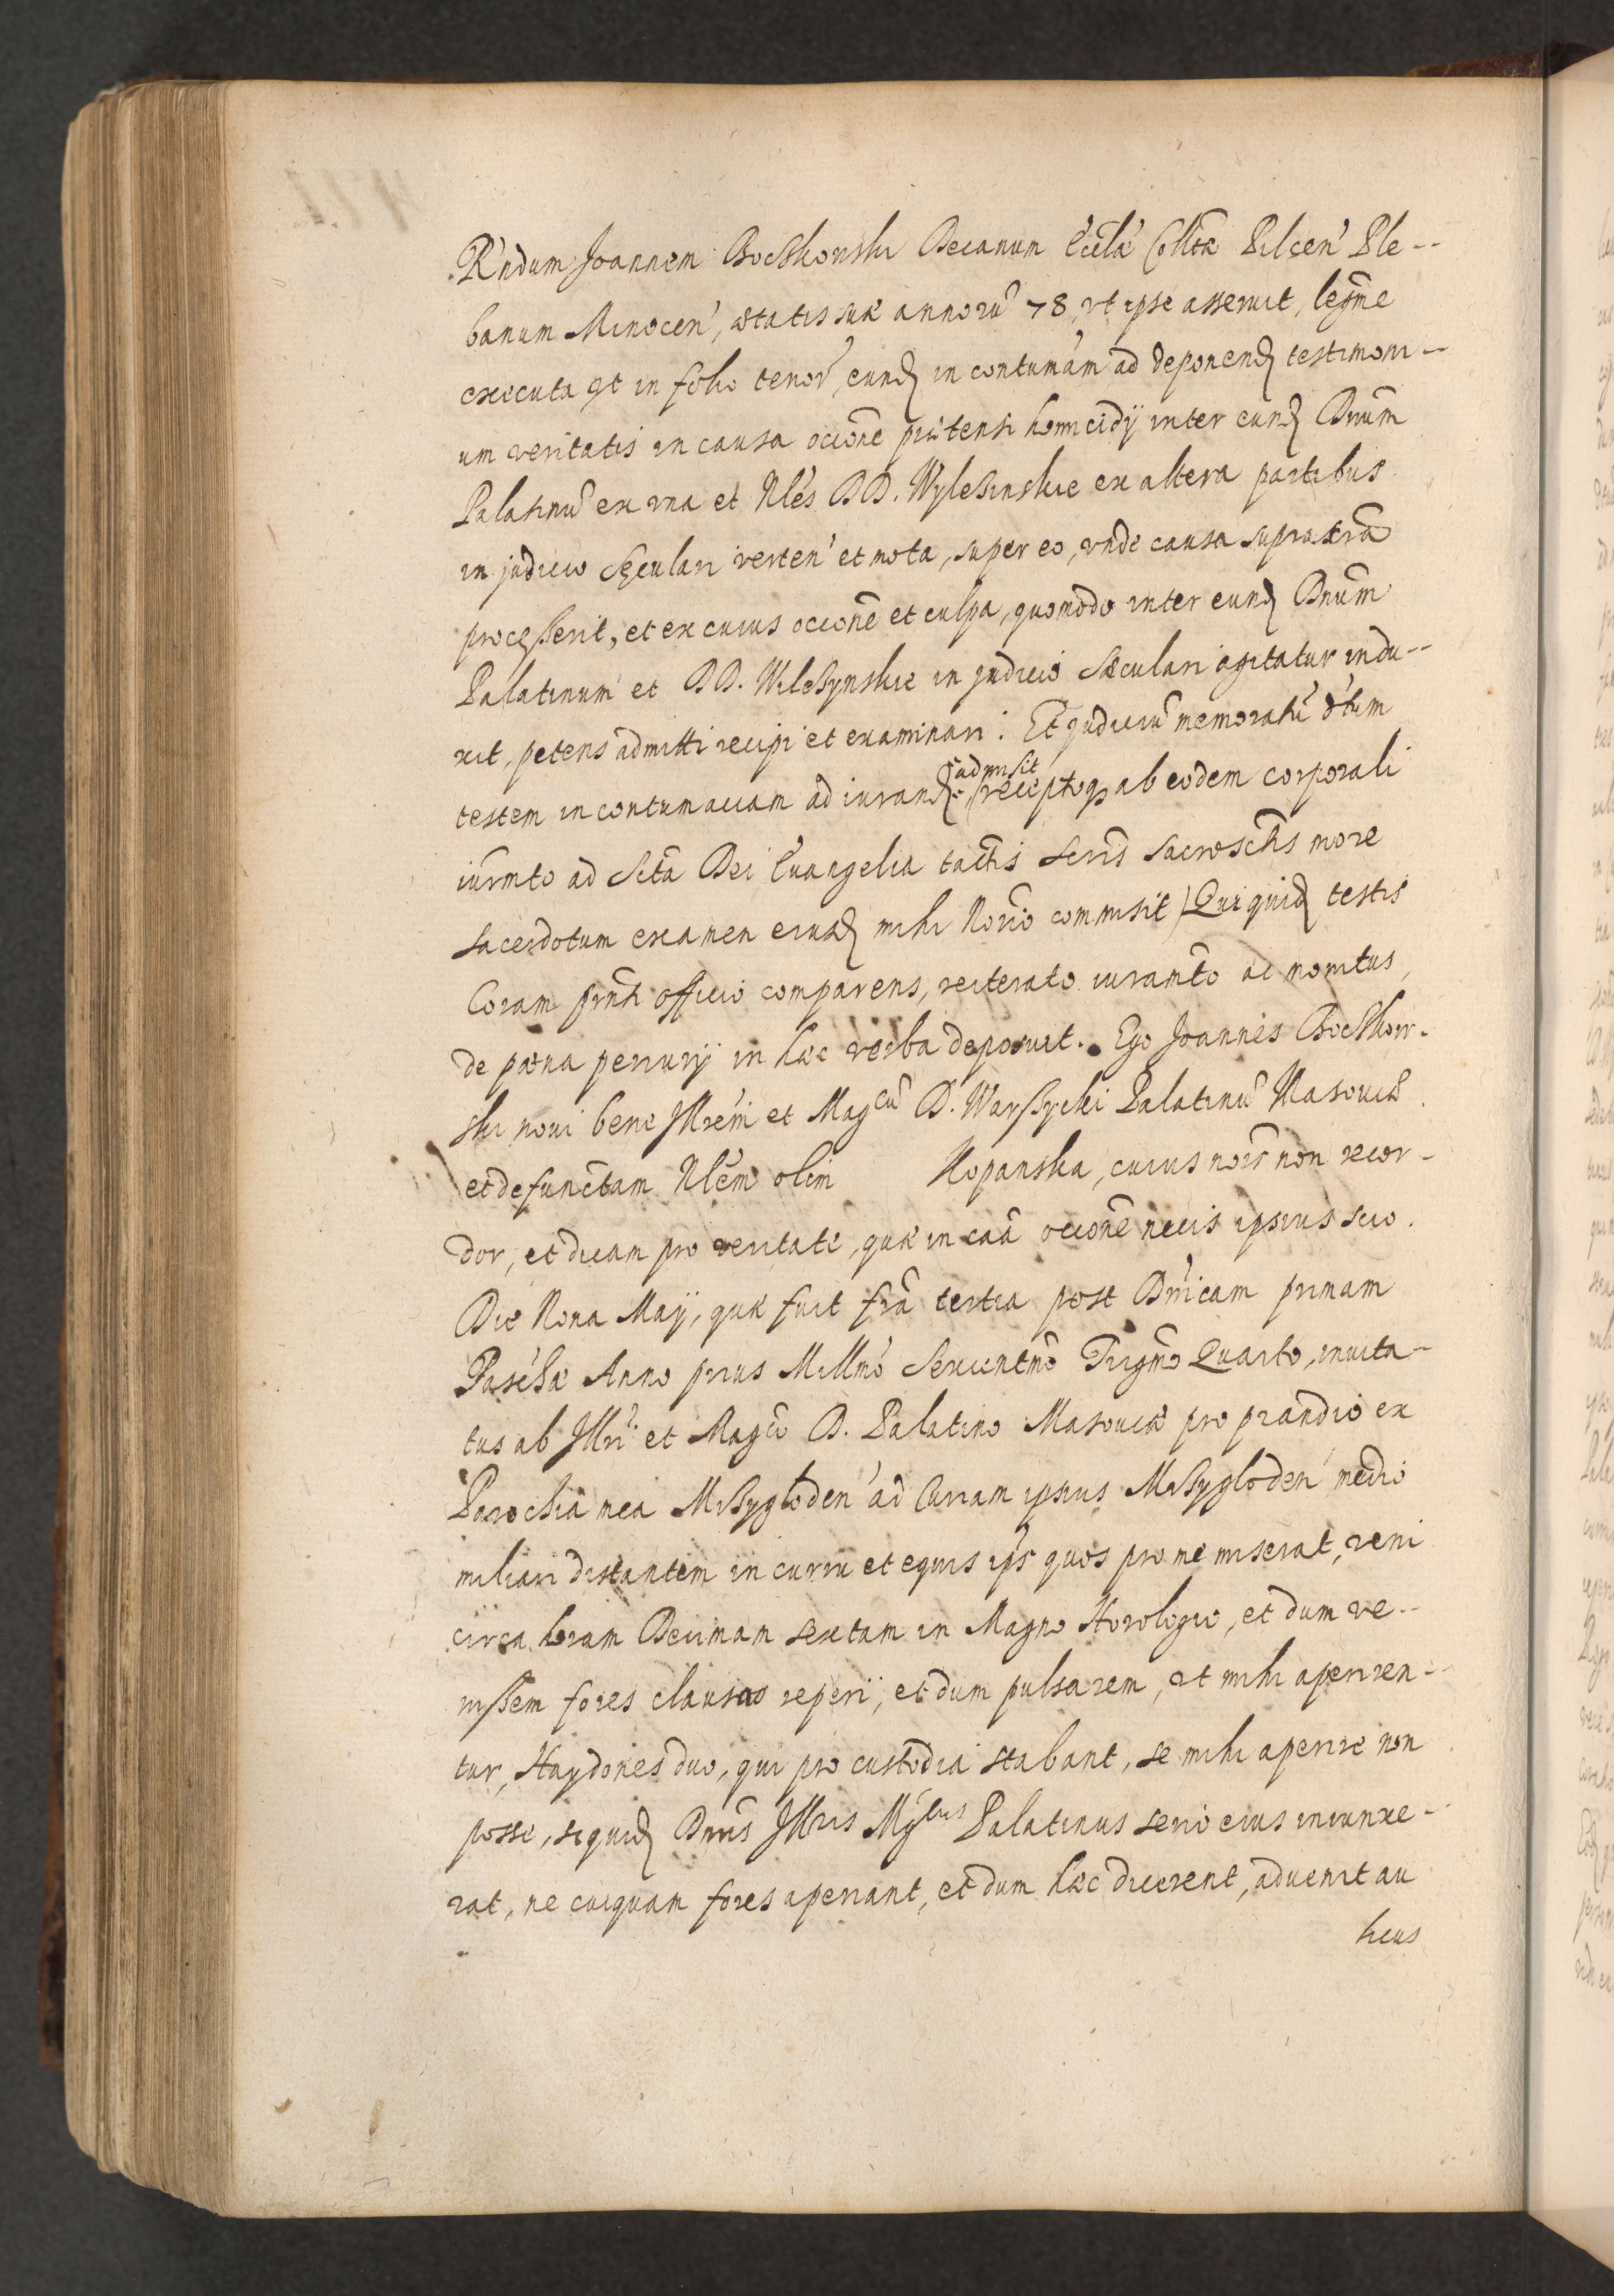 Rndum Joannem Bocskowski Decanum Eccla Collta Pilcen Ple--
banum Minocen, ætatis suæ annorũ 78, vt ipse asseruit, legme
executa qt in folio tenor, eund in contumam ad deponend testimoni--
um veritatis in causa occone prætensi homicidÿ inter eund Dnum
Palatinũ ex vna et Nles DD. Wylesinskie ex altera partibus
in judicio Seculari verten et mota, super eo, vnde causa suprascra
processerit, et ex cuius occone et culpa, quomodo inter eund Dnum
Palatinum et DD. Wilesynskie in judicio Sæculari agitatur indu--
xit, petens admitti recipi et examinari: Et judiciũ memoratũ dtum
admisit
testem in contumaciam ad iurand receptoq ab eodem corporali
iurmto ad Scta Dei Euangelia tactis scris sacrosctis more
sacerdotum examen eiusd mihi Norio commisit) Qui quid testis
Coram prnti officio comparens, reiterato iuramto ac monitus
de pœna periurÿ in hæc verba deposuit. Ego Joannes Bocskow-
ski noui bene Jllrem et Magcũ D. Warszycki Palatinũ Masouiæ
et defunctam Nlem olim Kopanska, cuius nois non recor-
dor, et dicam pro veritate, quæ in caa occone necis ipsius scio.
Die Nona Maÿ, quæ fuit fra tertia post Dnicam primam
Paschæ Anno prius Millmo Sexcentmo Trigmo Quarto, inuita-
tus ab Jllri et Magco D. Palatino Masouiæ pro prandio ex
Parochia mea Mrsygloden ad Curiam ipsius Mrsygloden medio
miliari distantem in curru et equis ips quos pro me miserat, veni
circa horam Decimam sextam in Magno Horologio, et dum ve--
nissem fores clausas reperi, et dum pulsarem, vt mihi aperiren--
tur, Haydones duo, qui pro custodia stabant, se mihi aperire non
posse, siquid Dnus Jllris Mgcus Palatinus serio eius iniunxe--
rat, ne cuiquam fores aperiant, et dum hæc dicerent, aduenit au
licus